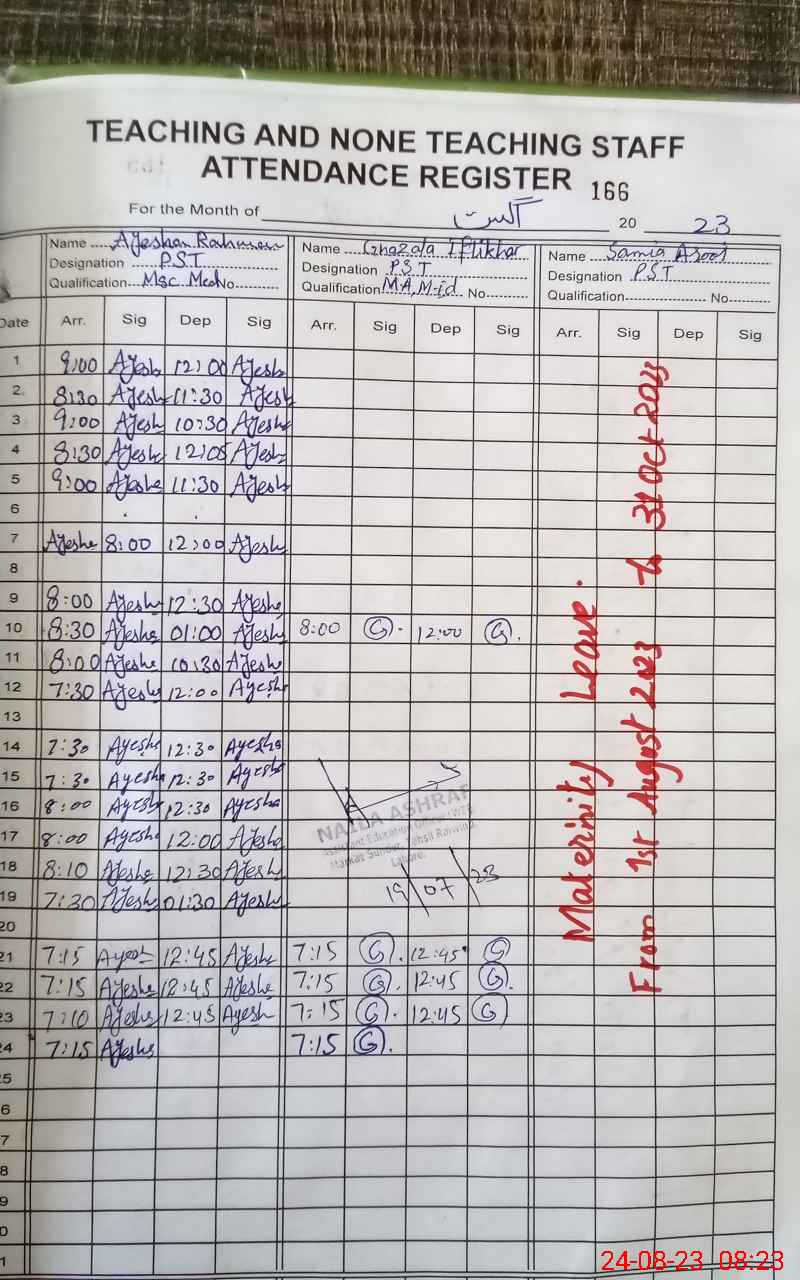 TEACHING AND NONE TEACHING STAFF
ATTENDANCE REGISTER 166
For the Month of اگست 20 23
Name Ayeshan Rahman Name Ghazala Iftikhar Name Samia
Designation P.S.T Designation P.S.T Designation P.S.T
Qualification Msc No Qualification MA, M-id No Qualification No
Date Arr. Sig Dep Sig Arr. Sig Dep Sig Arr. Sig Dep Sig
1 9:00 Ayesh 12:00 Ayesh
2 8:30 Ayesh 11:30 Ayesh
3 9:00 Ayesh 10:30 Ayeshe
4 8:30 Ayeshe 12:05 Ayesh
5 9:00 Ayeshe 11:30 Ayesh
6
7 Ayeshe 8:00 12:00 Ayesh
8
9 8:00 Ayeshe 12:30 Ayeshe
10 8:30 Ayeshe 01:00 Ayeshe 8:00 G. 12:00 G.
11 8:00 Ayeshe 10:30 Ayeshe
12 7:30 Ayeshe 12:00 Ayeshe
13
14 7:30 Ayeshe 12:30 Ayeshe
15 7:30 Ayesha 12:30 Ayeshe
16 8:00 Ayeshe 12:30 Ayeshe
17 8:00 Ayeshe 12:00 Ayeshe
18 8:10 Ayeshe 12:30 Ayeshe
19 7:30 Ayeshe 01:30 Ayeshe
20
21 7:15 Ayesh 12:45 Ayeshe 7:15 G. 12:45 G
22 7:15 Ayeshe 12:45 Ayeshe 7:15 G. 12:45 G.
23 7:10 Ayeshe 12:45 Ayesh 7:15 G. 12:45 G
24 7:15 Ayeshe 7:15 G.
5
6
7
8
9
0
1
NAILA ASHRAF
Assistant Education Officer (WEE)
Markaz Sunder, Tehsil Raiwind,
Lahore.
19/07/23
Maternity Leave.
From 1st August 2023 to 31 Oct 2023
24-08-23 08:23